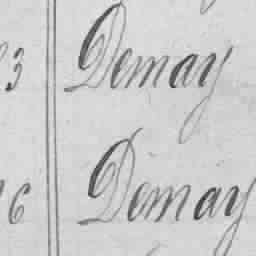 3 Demay
6 Demay